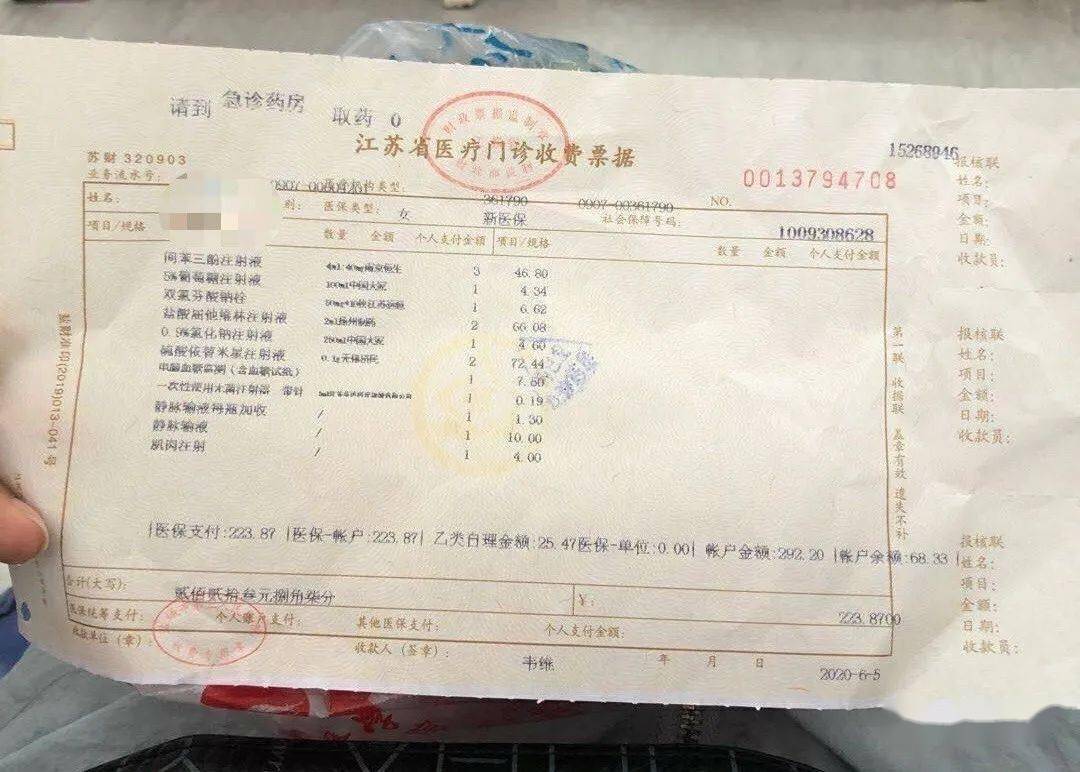 请到 急诊药房 取药 0
江苏省医疗门诊收费票据
苏财 320903
15268946
业务流水号:
医疗机构类型:
NO.
0013794708
361790
0907-00361790
姓名:
别:
女
医保类型:
新医保
社会保障号码:
1009308628
项目/规格
数量 金额 个人支付金额
项目/规格
数量 金额 个人支付金额
间苯三酚注射液 3 46.80
5%葡萄糖注射液 100ml中国大冢 1 4.34
双氯芬酸钠栓 1 6.62
盐酸屈他维林注射液 2 66.08
0.9%氯化钠注射液 250ml中国大冢 1 4.60
硫酸依替米星注射液 2 72.44
(含血糖试纸) 1 7.50
一次性使用无菌注射器 带针 1 0.19
静脉输液 加收 / 1 1.30
静脉输液 / 1 10.00
肌肉注射 / 1 4.00
|医保支付:223.87 |医保-帐户:223.87| 乙类自理金额:25.47医保-单位:0.00| 帐户金额:292.20 |帐户余额:68.33 |
合计(大写):
贰佰贰拾叁元捌角柒分
¥:
223.8700
医保统筹支付:
个人账户支付:
其他医保支付:
个人支付金额:
收款单位(章):
收款人(签章):
韦维
年 月 日
2020-6-5
苏财准印(2019)013-041号
第一联 收据联 盖章有效 遗失不补
报核联
姓名:
项目:
金额:
日期:
收款员:
报核联
姓名:
项目:
金额:
日期:
收款员:
报核联
姓名:
项目:
金额:
日期:
收款员: